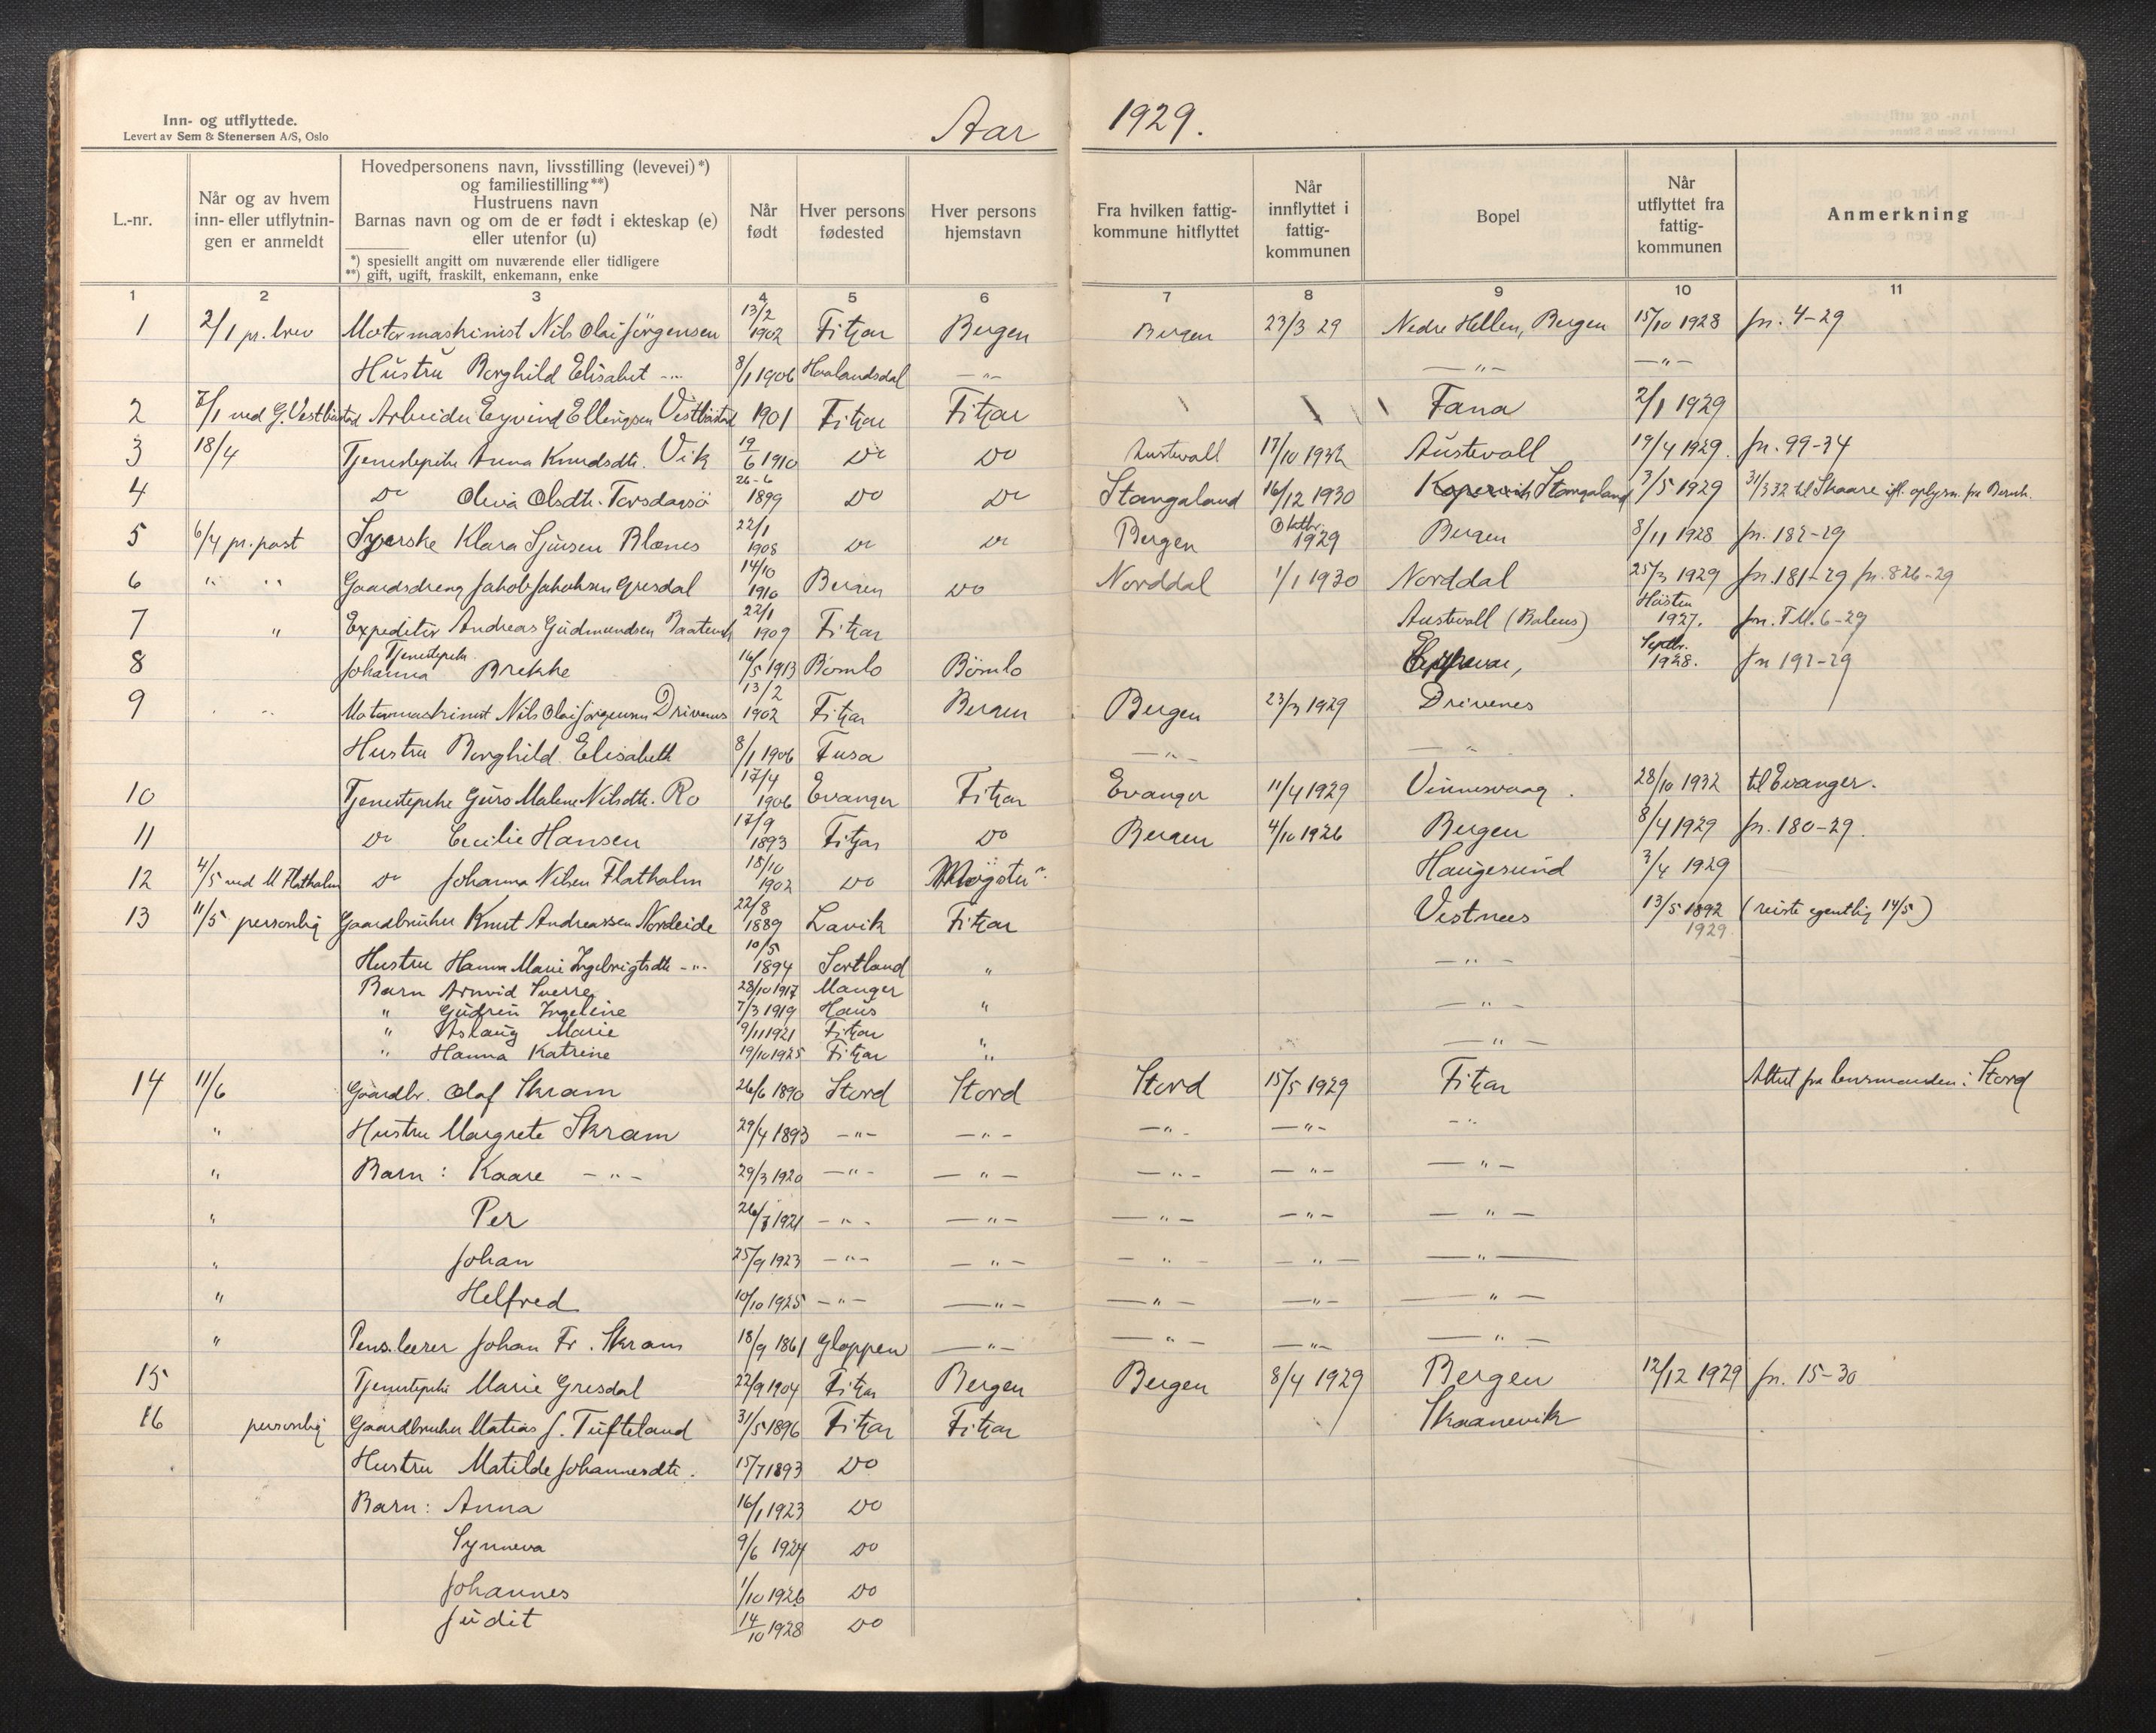 Inn- og utflyttede.
Levert av Sem & Stenersen A/S, Oslo
Aar 1929.
L.-nr.
Når og av hvem inn- eller utflytnin-gen er anmeldt
Hovedpersonens navn, livsstilling (levevei)*) og familiestilling**)
Hustruens navn
Barnas navn og om de er født i ekteskap (e) eller utenfor (u)
*) spesiellt angitt om nuværende eller tidligere
**) gift, ugift, fraskilt, enkemann, enke
Når født
Hver persons fødested
Hver persons hjemstavn
Fra hvilken fattig-kommune hitflyttet
Når innflyttet i fattig-kommunen
Bopel
Når utflyttet fra fattig-kommunen
Anmerkning
1 2 3 4 5 6 7 8 9 10 11
1 2/1 pr. brev Motormaskinist Nils Olai Jörgensen 13/2 1902 Fitjar Bergen Bergen 23/3 29 Nedre Hellen, Bergen 15/10 1928 jn. 4-29
Hustru Borghild Elisabet -"- 8/1 1906 Haalandsdal -"- -"- -"-
2 7/1 ved G. Vestböstad Arbeider Eyvind Ellingsen Vestböstad 1901 Fitjar Fitjar Fana 2/1 1929
3 18/4 Tjenestepike Anna Knudsdtr. Vik 19/6 1910 Do Do Austevoll 17/10 1932 Austevoll 19/4 1929. jn. 99-34
4 Do Oliva Olsdtr. Torsdarsö 26-6 1899 Do Do Stangaland 16/12 1930 Kopervik Stangaland 3/5 1929 31/3 32 til Skaare ifl. oplysn. fra Bernh.
5 6/4 pr. post Syerske Klara Sjursen Blænes 22/1 1908 Do Do Bergen Oktbr. 1929 Bergen 8/11 1928 jn. 182-29
6 " " Gaardsdreng Jakob Jakobsen Gresdal 14/10 1910 Bergen Do Norddal 1/1 1930 Norddal 25/3 1929 jn. 181-29 jn. 826-29
7 " Expeditör Andreas Gudmundsen 22/1 1909 Fitjar Austevoll (Bakens) Hösten 1927. jn. F.M. 6-29
8 Tjenestepike Johanna Brekke 16/5 1913 Bömlo Bömlo Septbr. 1928. jn 192-29
9 " " Motormaskinist Nils Olai Jörgensen Drivenes 13/2 1902 Fitjar Bergen Bergen 23/3 1929 Drivenes
Hustru Borghild Elisabeth 8/1 1906 Fusa -"- -"-
10 Tjenestepike Guro Malene Nilsdtr. Ro 17/4 1906 Evanger Fitjar Evanger 11/4 1929 Vinnesvaag. 28/10 1932 til Evanger.
11 Do Cecilie Hansen 17/9 1893 Fitjar Do Bergen 4/10 1926 Bergen 8/4 1929 jn. 180-29.
12 4/5 ved M Flatholm Do Johanna Nilsen Flatholm 18/10 1902 Do Møgster Haugesund 3/4 1929
13 11/5 personlig Gaardbruker Knut Andreassen Nordeide 22/8 1889 Lavik Fitjar Vestnes 13/5 1892 1929 (reiste egentlig 14/5)
Hustru Hanna Marie Ingebrigtsdtr -"- 10/5 1894 Sortland " -"-
Barn Arnvid Sverre 28/10 1917 Manger
" Gudrun Ingeleine 7/3 1919 Haus " -"-
" Aslaug Marie 9/11 1921 Fitjar
" Hanna Katrine 19/10 1925 Fitjar " -"-
14 11/6 Gaardbr. Olaf Skram 26/6 1890 Stord Stord Stord 15/5 1929 Fitjar Attest fra lensmanden i Stord
" Hustru Margrete Skram 29/4 1893 -"- -"- -"- -"- -"-
" Barn: Kaare -"- 29/3 1920 -"- -"- -"- -"- -"-
" Per 26/7 1921 -"- -"- -"- -"- -"-
" Johan 25/9 1923 -"- -"- -"- -"- -"-
" Helfred 10/10 1925 -"- -"- -"- -"- -"-
" Pens. lærer Johan Fr. Skram 18/9 1861 Gloppen -"- -"- -"- -"-
15 Tjenestepike Marie Gresdal 22/9 1904 Fitjar Bergen Bergen 8/4 1929 Bergen 12/12 1929 jn. 15-30
16 personlig Gaardbruker Matias J. Tufteland 31/5 1896 Fitjar Fitjar Skaanevik
Hustru Matilde Johannesdtr. 15/7 1893 Do
Barn: Anna 16/1 1923 Do
Synneva 9/6 1924 Do
Johannes 1/10 1926 Do
Judit 14/10 1928 Do